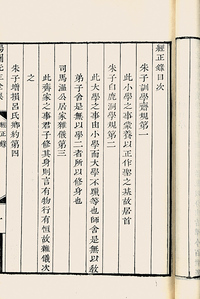 經正錄目次
朱子訓學齋規第一
此小學之事蒙養以正作聖之基故居首
朱子白鹿洞學規第二
此大學之事由小學而大學不躐等也師舍是無以教
弟子舍是無以學二者所以修身也
司馬溫公居家雜儀第三
此齊家之事君子修其身則言有物行有恒故雜儀次
之
朱子增損呂氏鄉約第四